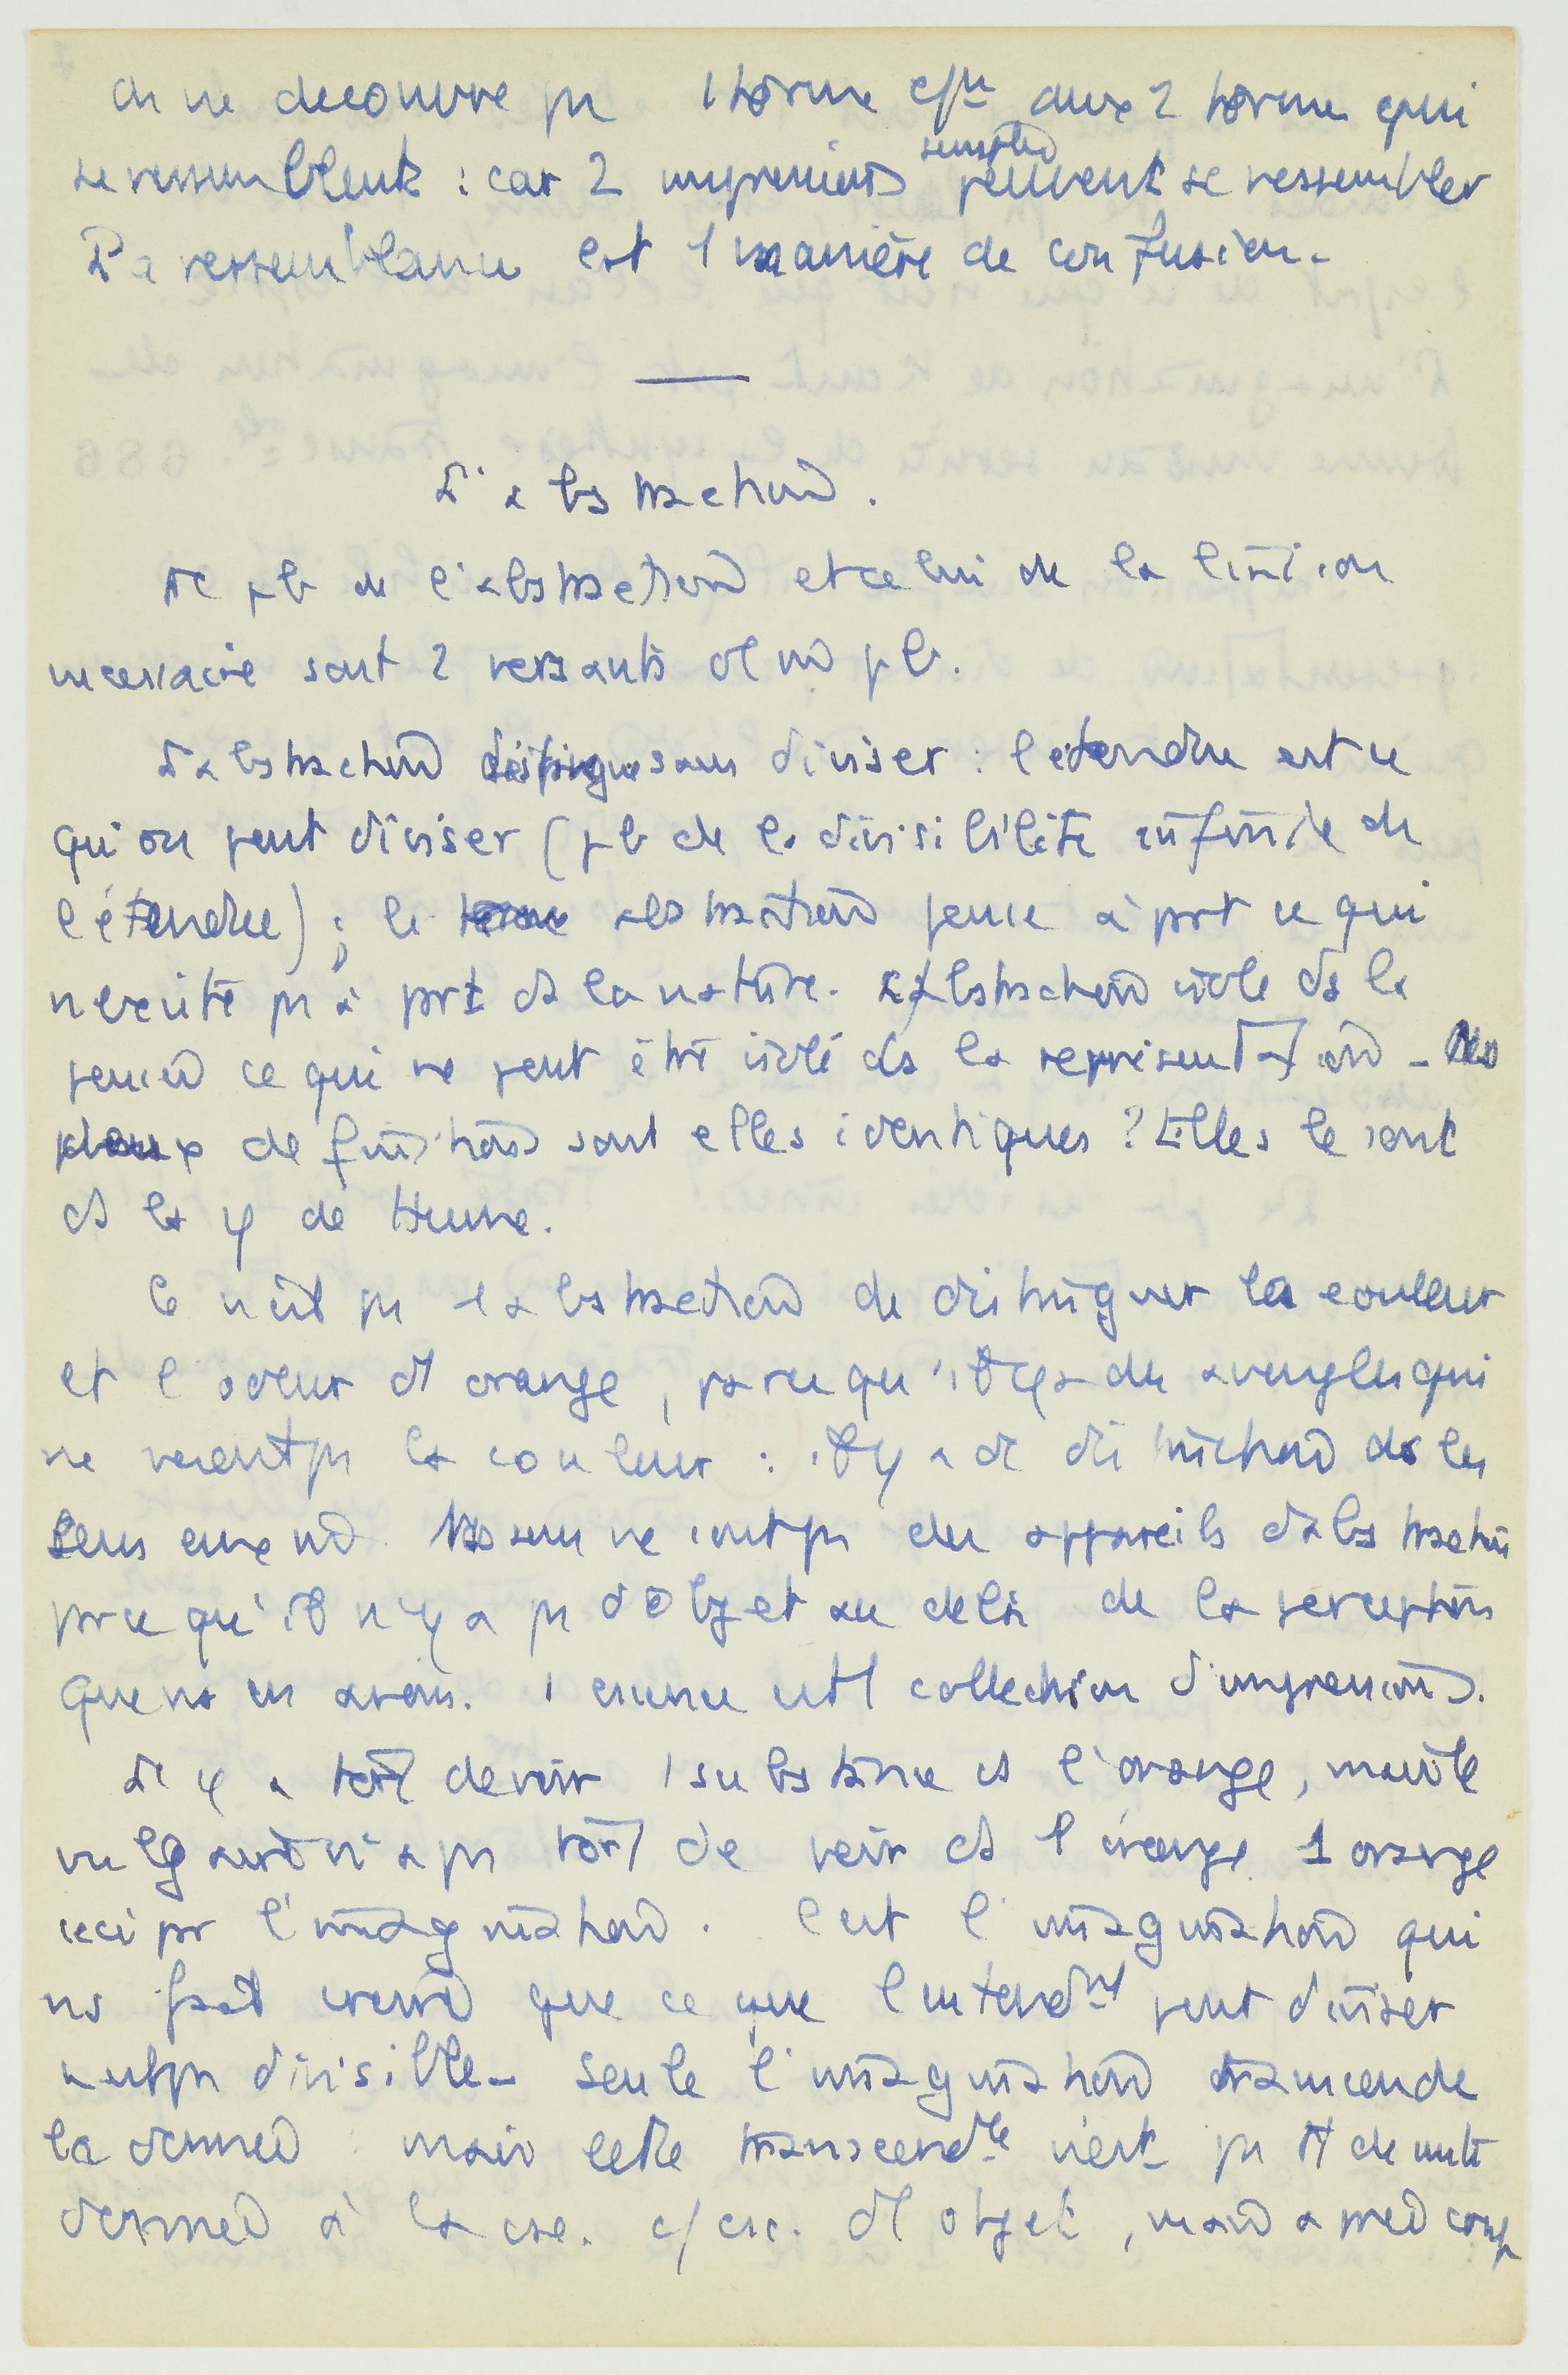 on ne decouvre pas 1 terme cun aux 2 termes qui
se ressemblent : car 2 impressions simples peuvent se ressembler
La ressemblance est 1 manière de confusion.
L'abstraction.
Le pb de l'abstraction et celui de la liaison
necessaire sont 2 versants d'1 pb.
L'abstraction distingue sans diviser : l'etendue est ce
qu'on peut diviser (pb de la divisibilité infinie de
l'étendue) ; la abstraction pense à part ce qui
n'existe pas à part ds la nature. L'abstraction isole ds la
pensée ce qui ne peut être isolé ds la représentation - Ces
deux définitions sont elles identiques ? Elles le sont
ds la φ de Hume.
Ce n'est pas 1 abstraction de distinguer la couleur
et l'odeur d'1 orange, parce qu'il y a des aveugles qui
ne voient pas la couleur : il y a 1 distinction ds les
sens eux m. Nos sens ne sont pas des appareils d'abstraction
parce qu'il n'y a pas d'objet au delà de la perception
que ns en avons. 1 essence est 1 collection d'impressions.
Le φ a tort de voir 1 substance ds l'orange, mais le
vulgaire n'a pas tort de voir ds l'orange 1 orange
ceci par l'imagination. C'est l'imagination qui
ns fait croire que ce que l'entendt peut diviser
n'est pas divisible - Seule l'imagination transcende
la donnée : mais cette transcendce n'est pas tt de suite
donnée à la csce. c/ csce. d'1 objet, mais après coup